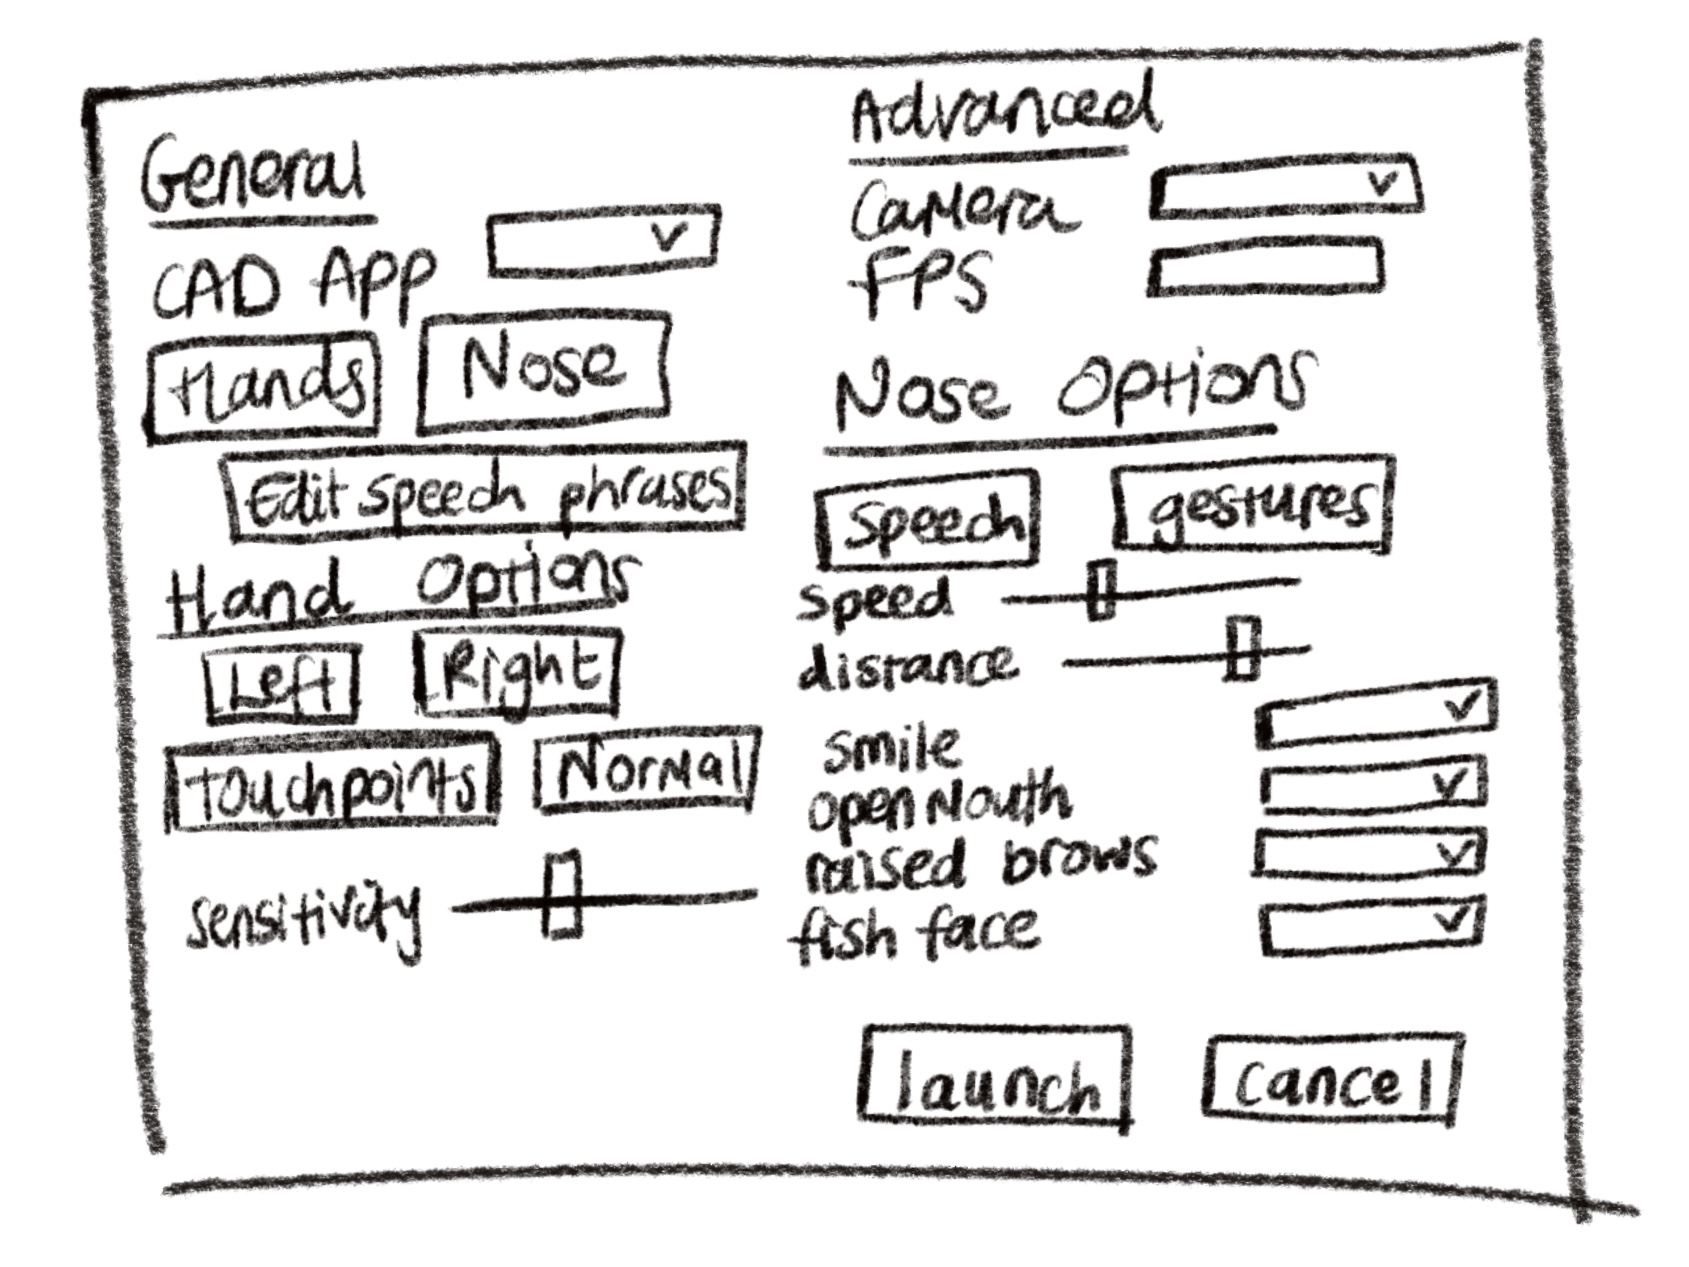 General
CAD App
Hands Nose
Edit speech phrases
Hand Options
Left Right
touchpoints Normal
sensitivity
Advanced
Camera
FPS
Nose Options
Speech gestures
speed
distance
smile
open Mouth
raised brows
fish face
launch cancel